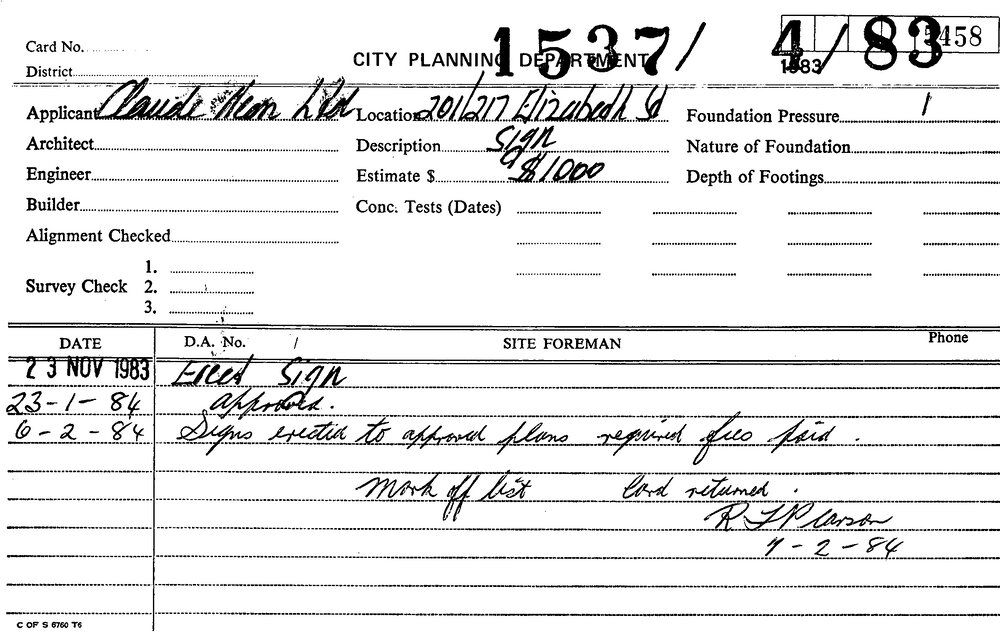 Card No.
1537/ 4/83
5458
CITY PLANNING DEPARTMENT
1983/
District
Applicant Claude Neon Ltd Location 201/217 Elizabeth St Foundation Pressure 1
Architect Description Sign Nature of Foundation
Engineer Estimate $ $1000 Depth of Footings
Builder Conc. Tests (Dates)
Alignment Checked
1.
Survey Check 2.
3.
DATE D.A. No. / SITE FOREMAN Phone
23 NOV 1983 Erect Sign
23-1-84 approved.
6-2-84 Signs erected to approved plans required fees paid.
Mark off list Card returned.
R L Pearson
7-2-84
C OF S 6760 T6